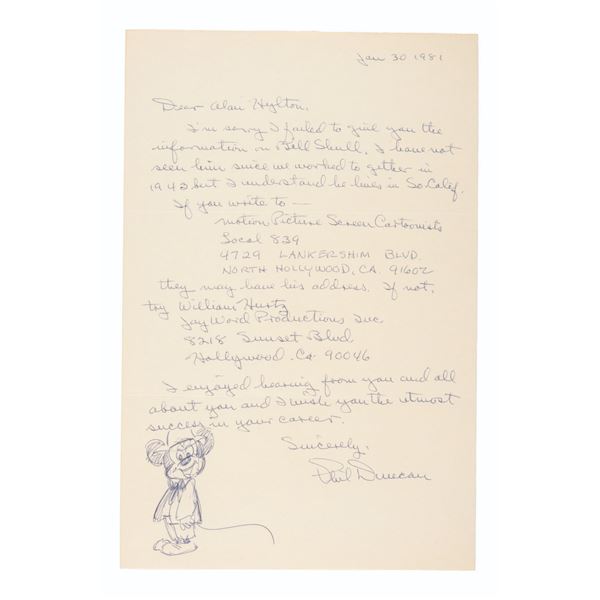 Jan 30 1981
Dear Alan Hylton,
I'm sorry I failed to give you the
information on Bill Shull. I have not
seen him since we worked to gether in
1942 but I understand he lives in So. Calif.
If you write to —
Motion Picture Screen Cartoonists
Local 839
4729 LANKERSHIM BLVD.
NORTH HOLLYWOOD, CA. 91602
they may have his address. If not,
try William Hurtz
Jay Ward Productions Inc.
8218 Sunset Blvd.
Hollywood. Ca 90046
I enjoyed hearing from you and all
about you and I wish you the utmost
success in your career.
Sincerely,
Phil Duncan